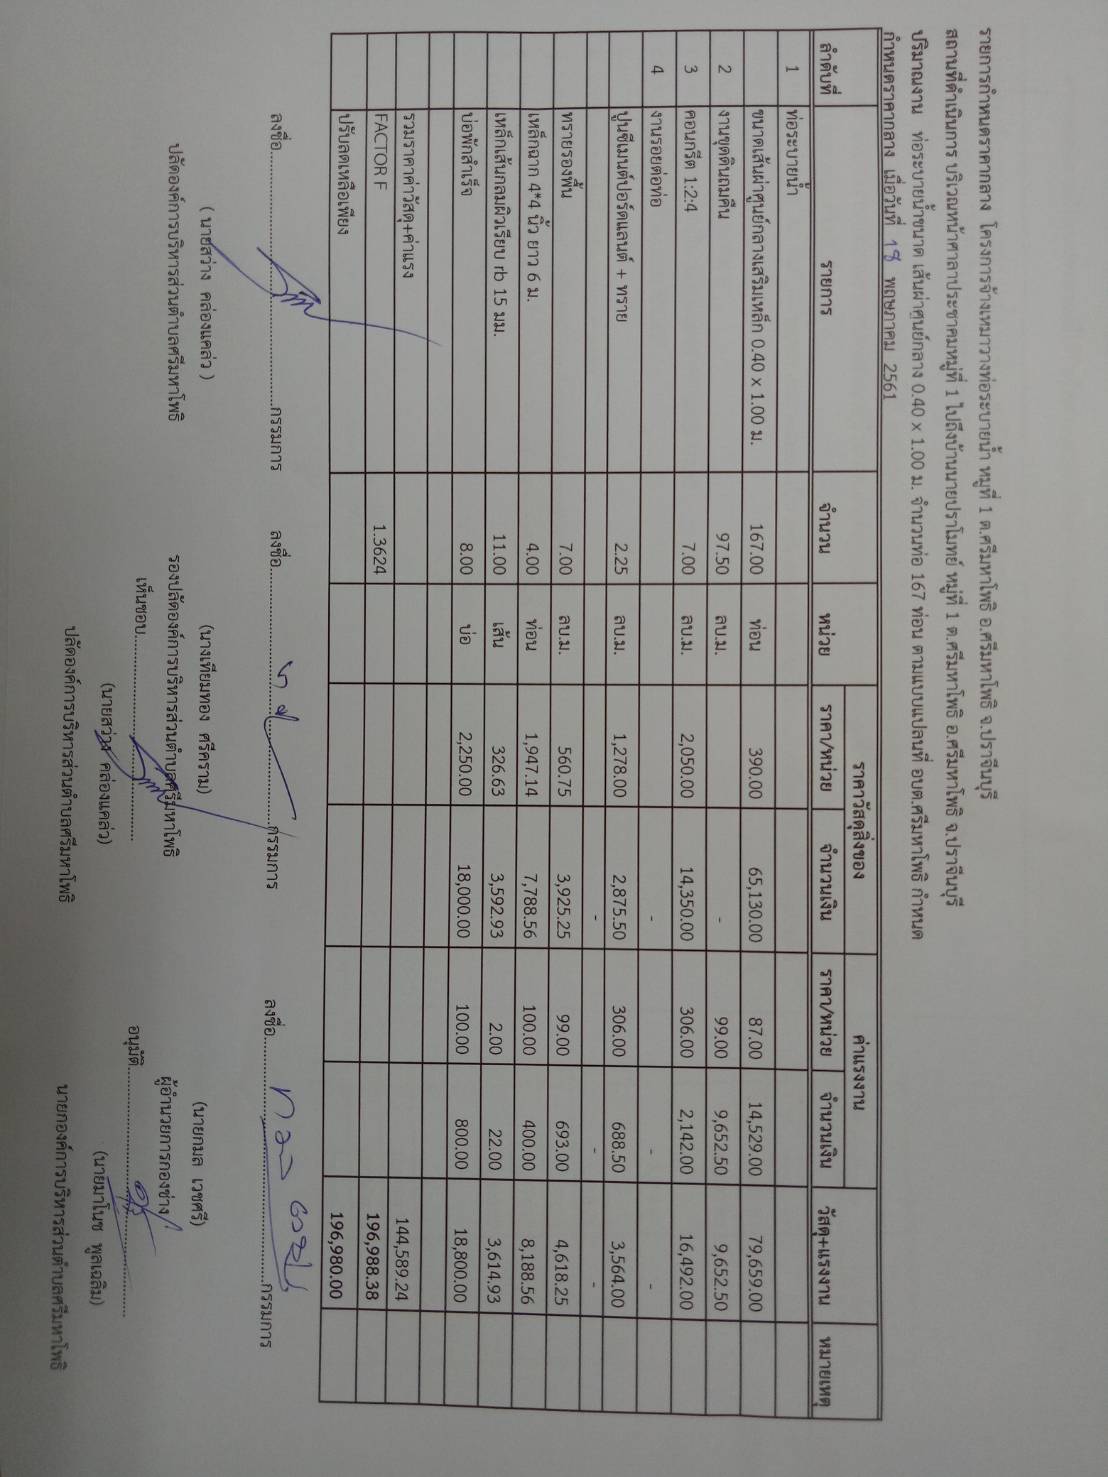 รายการกำหนดราคากลาง โครงการจ้างเหมาวางท่อระบายน้ำ หมู่ที่ 1 ต.ศรีมหาโพธิ อ.ศรีมหาโพธิ จ.ปราจีนบุรี
สถานที่ดำเนินการ บริเวณหน้าศาลาประชาคมหมู่ที่ 1 ไปถึงบ้านนายปราโมทย์ หมู่ที่ 1 ต.ศรีมหาโพธิ อ.ศรีมหาโพธิ จ.ปราจีนบุรี
ปริมาณงาน ท่อระบายน้ำขนาด เส้นผ่าศูนย์กลาง 0.40 x 1.00 ม. จำนวนท่อ 167 ท่อน ตามแบบแปลนที่ อบต.ศรีมหาโพธิ กำหนด
กำหนดราคากลาง เมื่อวันที่ 18 พฤษภาคม 2561
ลำดับที่ รายการ จำนวน หน่วย ราคาวัสดุสิ่งของ ค่าแรงงาน วัสดุ+แรงงาน หมายเหตุ
ราคา/หน่วย จำนวนเงิน ราคา/หน่วย จำนวนเงิน
1 ท่อระบายน้ำ
ขนาดเส้นผ่าศูนย์กลางเสริมเหล็ก 0.40 x 1.00 ม. 167.00 ท่อน 390.00 65,130.00 87.00 14,529.00 79,659.00
2 งานขุดดินถมคืน 97.50 ลบ.ม. - 99.00 9,652.50 9,652.50
3 คอนกรีต 1:2:4 7.00 ลบ.ม. 2,050.00 14,350.00 306.00 2,142.00 16,492.00
4 งานรอยต่อท่อ - - -
ปูนซีเมนต์ปอร์ตแลนต์ + ทราย 2.25 ลบ.ม. 1,278.00 2,875.50 306.00 688.50 3,564.00
- - -
ทรายรองพื้น 7.00 ลบ.ม. 560.75 3,925.25 99.00 693.00 4,618.25
เหล็กฉาก 4*4 นิ้ว ยาว 6 ม. 4.00 ท่อน 1,947.14 7,788.56 100.00 400.00 8,188.56
เหล็กเส้นกลมผิวเรียบ rb 15 มม. 11.00 เส้น 326.63 3,592.93 2.00 22.00 3,614.93
บ่อพักสำเร็จ 8.00 บ่อ 2,250.00 18,000.00 100.00 800.00 18,800.00
รวมราคาค่าวัสดุ+ค่าแรง 144,589.24
FACTOR F 1.3624 196,988.38
ปรับลดเหลือเพียง 196,980.00
ลงชื่อ..............................กรรมการ ลงชื่อ..............................กรรมการ ลงชื่อ..............................กรรมการ
( นายสว่าง คล่องแคล่ว ) (นางเทียมทอง ศรีคราม) (นายกมล เวชศรี)
ปลัดองค์การบริหารส่วนตำบลศรีมหาโพธิ รองปลัดองค์การบริหารส่วนตำบลศรีมหาโพธิ ผู้อำนวยการกองช่าง
เห็นชอบ.............................. อนุมัติ..............................
(นายสว่าง คล่องแคล่ว) (นายมาโนช พูลเฉลิม)
ปลัดองค์การบริหารส่วนตำบลศรีมหาโพธิ นายกองค์การบริหารส่วนตำบลศรีมหาโพธิ